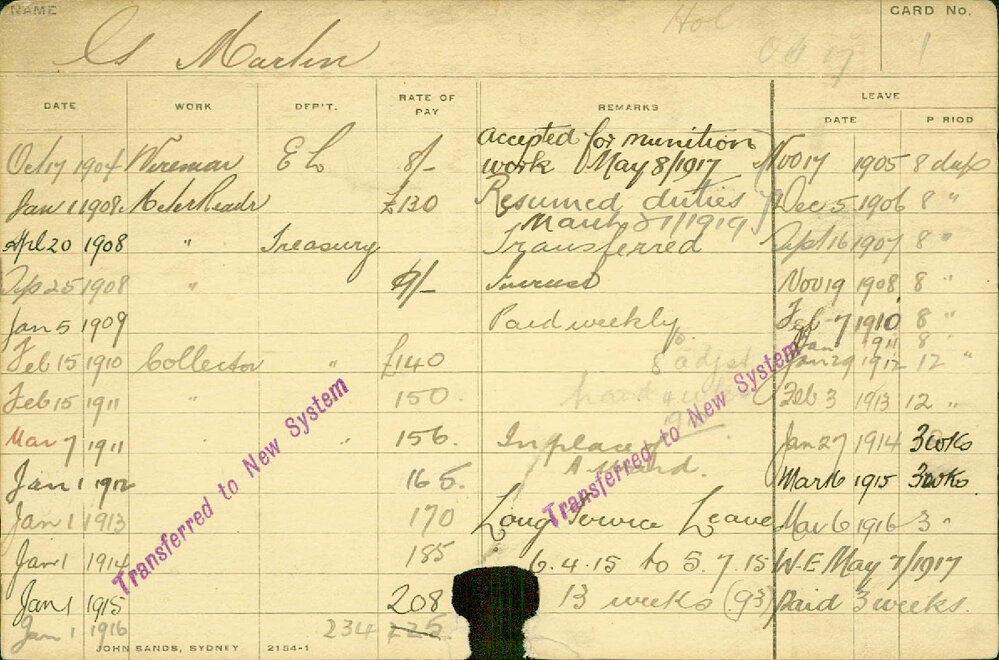 NAME
CARD No.
Martin
1
DATE WORK DEP'T. RATE OF PAY REMARKS LEAVE
DATE P RIOD
Oct 17 1904 Wireman E L 8/- Accepted for munition work May 8/1917 Nov 17 1905 8 days
Jan 1 1908 MeterReadr £130 Resumed duties March 31/1919 Dec 5 1906 8 "
Apl 20 1908 " Treasury Transferred Sept 16 1907 8 "
Sep 25 1908 " 9/- Increased Nov 19 1908 8 "
Jan 5 1909 Paid weekly Feb 7 1910 8 "
Jan 1911 8 "
Feb 15 1910 Collector " £140 Jan 29 1912 12 "
Feb 15 1911 " 150. Feb 3 1913 12 "
Mar 7 1911 " 156. In place of Jan 27 1914 3 wks
Jan 1 1912 165. Award. Mar 16 1915 3 wks.
Jan 1 1913 170 Long Service Leave Mar 6 1916 3 "
Jan 1 1914 185 6.4.15 to 5.7.15 W.E May 7/1917
Jan 1 1915 208 13 weeks (93) Paid 3 weeks.
Jan 1 1916 234 225.
Transferred to New System
Transferred to New System
JOHN SANDS, SYDNEY 2154-1